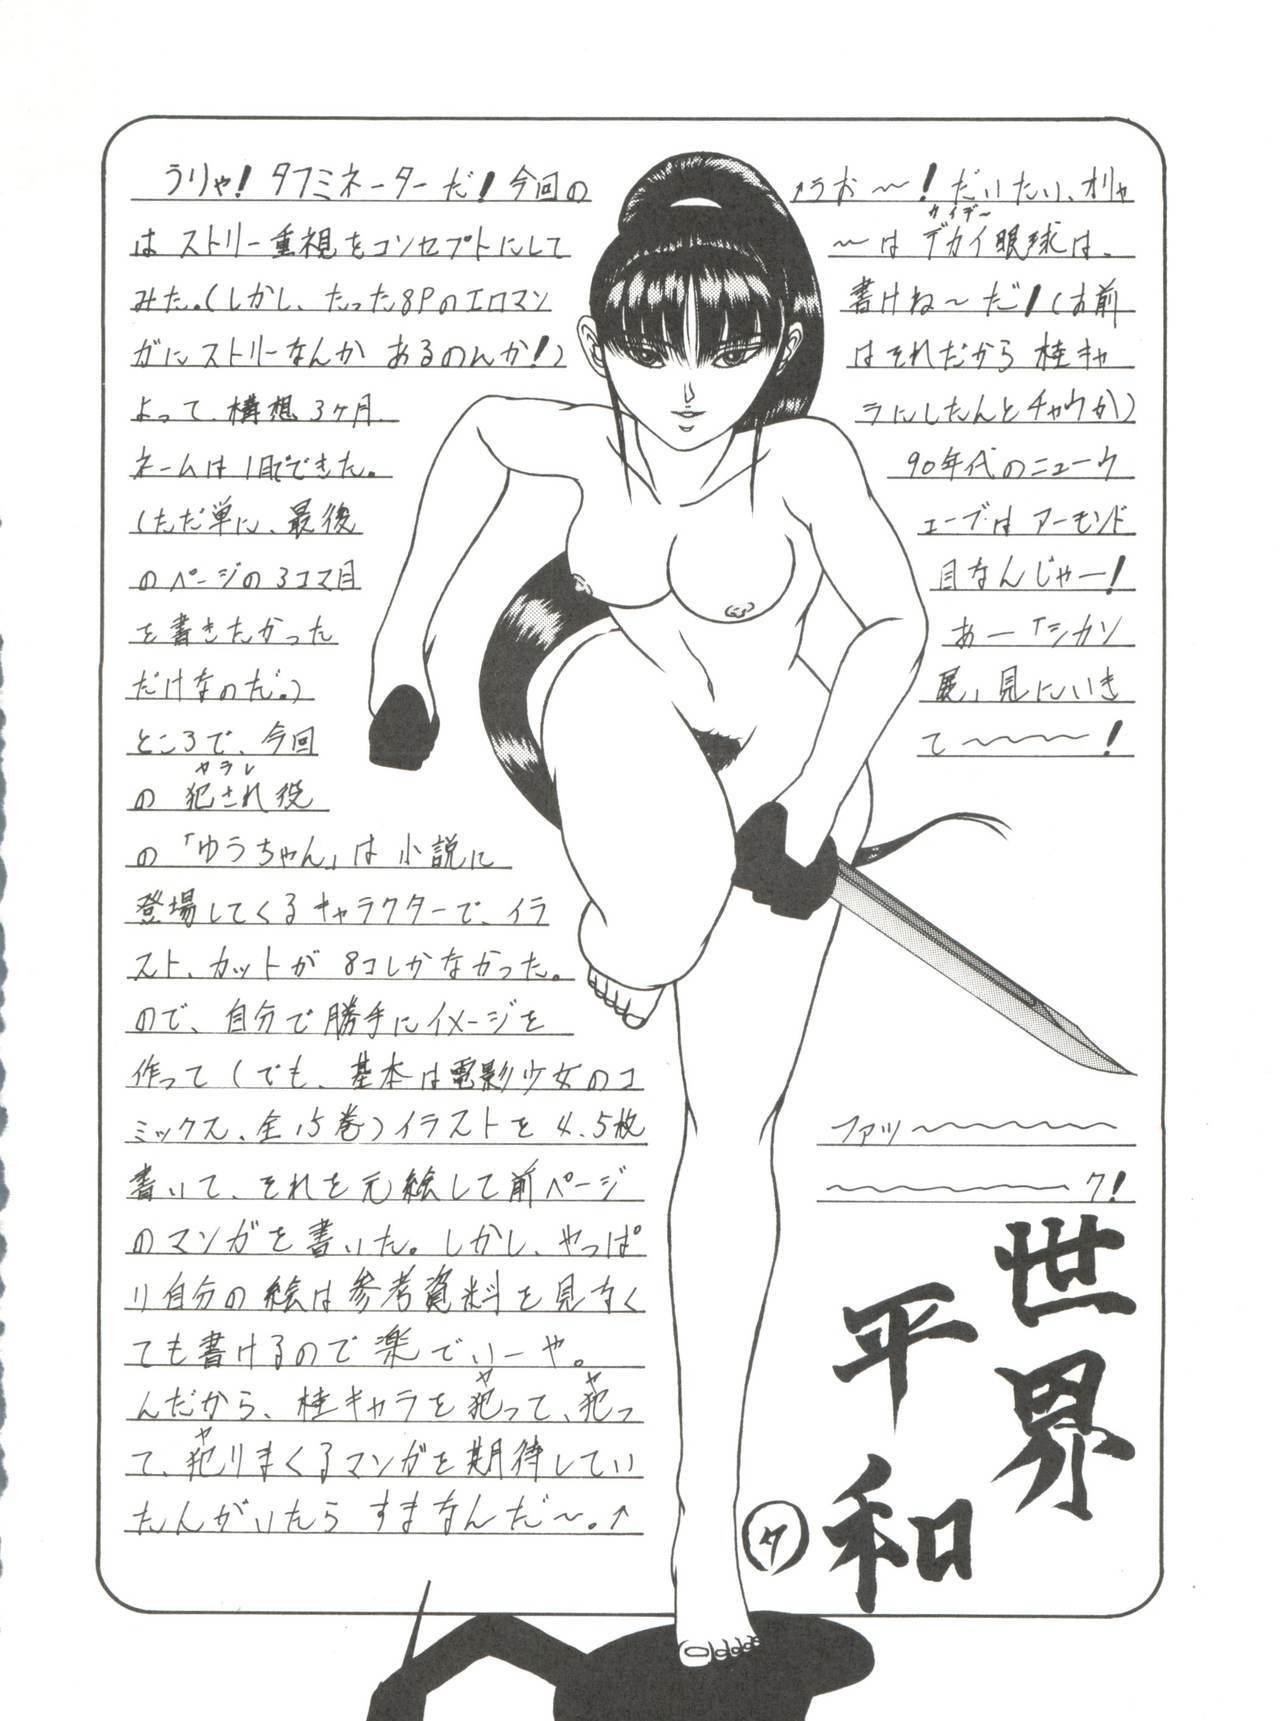 うりゃ！タフミネーターだ！今回の
はストリー重視をコンセプトにして
みた。(しかし、たった8Pのエロマン
ガにストリーなんかあるのんか！)
よって、構想3ケ月、
ネームは1日でできた。
(ただ単に、最後
のページの3コマ目
を書きたかった
だけなのだ。)
ところで、今回
の犯され役
ヤラレ
の「ゆうちゃん」は小説に
登場してくるキャラクターで、イラ
スト、カットが8コしかなかった。
ので、自分で勝手にイメージを
作って(でも、基本は電影少女のコ
ミックス、全15巻)イラストを4、5枚
書いて、それを元絵して前ページ
のマンガを書いた。しかし、やっぱ
り自分の絵は参考資料を見なく
ても書けるので楽でいーや。
んだから、桂キャラを犯って、犯っ
ヤ ヤ
て、犯りまくるマンガを期待してい
ヤ
たんがいたらすまなんだ〜。↑
↑うお〜〜！だいたい、オリャ
〜はデカイ眼球は、
書けね〜だ！(お前
はそれだから桂キャ
ラにしたんとチャウか)
90年代のニューウ
ェーブはアーモンド
目なんじゃー！
あー「シカソ
展」見にいき
て〜〜〜〜！
ファッ〜〜〜〜〜〜
〜〜〜〜〜〜〜ク！
世界
平和
タ